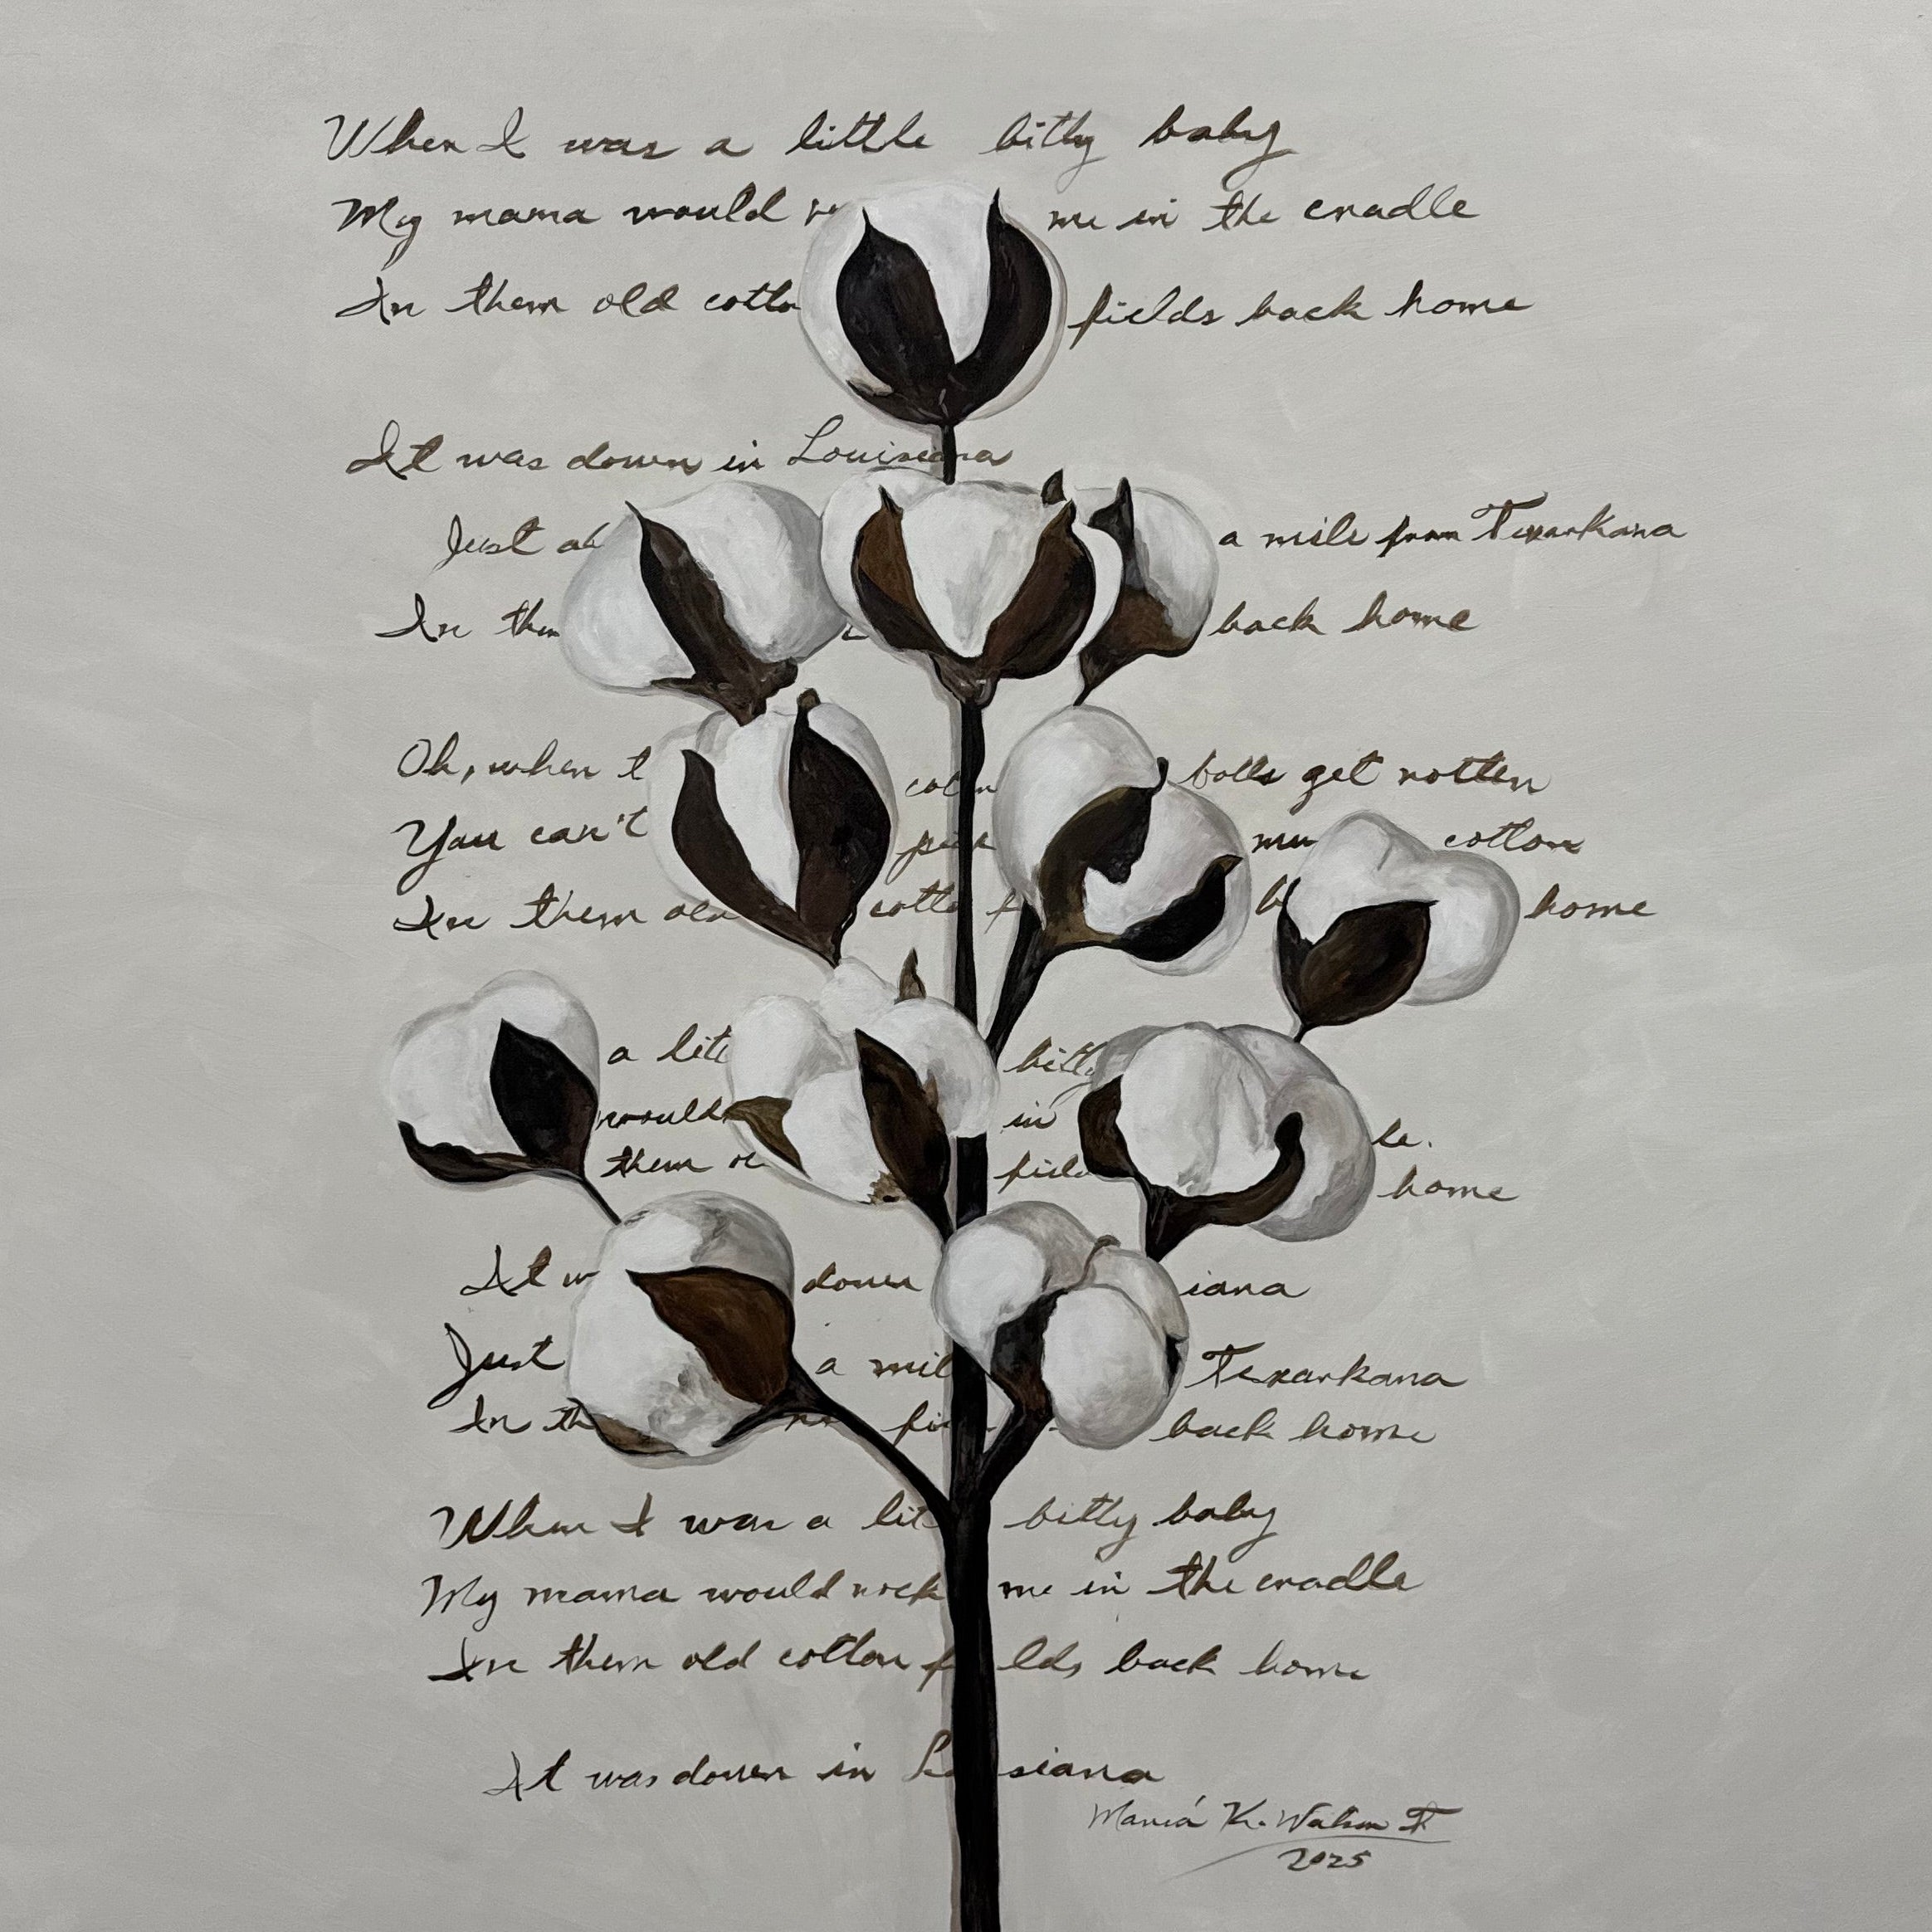 When I was a little bitty baby
My mama would me in the cradle
In them old cotto fields back home
It was down in Louisiana
Just ab a mile from Texarkana
In them back home
Oh, when t cotton bolls get rotten
You can't pick cotton
In them old cotto f b home
a litt bitty
would in le.
them ol field home
It w down iana
Just a mil Texarkana
In th fi back home
When I was a lit bitty baby
My mama would rock me in the cradle
In them old cotton f lds back home
It was down in Lo siana
Maria K. Watson
2025